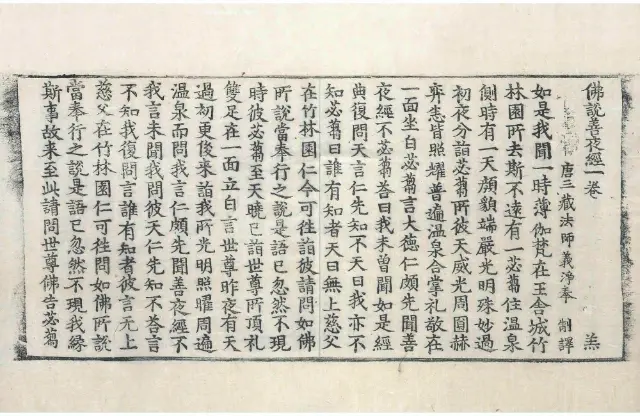 佛說善夜經一卷 羔
唐三藏法師義淨奉 制譯
如是我聞一時薄伽梵在王舍城竹
林園所去斯不遠有一苾蒭住温泉
側時有一天顏貌端嚴光明殊妙過
初夜分詣苾蒭所彼天威光周圓赫
弈悉皆照耀普遍温泉合掌礼敬在
一面坐白苾蒭言大德仁頗先聞善
夜經不苾蒭荅曰我未曾聞如是經
典復問天言仁先知不天曰我亦不
知苾蒭曰誰有知者天曰無上慈父
在竹林園仁今可往詣彼請問如佛
所說當奉行之說是語已忽然不現
時彼苾蒭至天曉已詣世尊所頂礼
雙足在一面立白言世尊昨夜有天
過初更後来詣我所光明照曜周遍
温泉而問我言仁頗先聞善夜經不
我言未聞我問彼天仁先知不荅言
不知我復問言誰有知者彼言无上
慈父在竹林園仁可往問如佛所說
當奉行之說是語已忽然不現我緣
斯事故来至此請問世尊佛告苾蒭